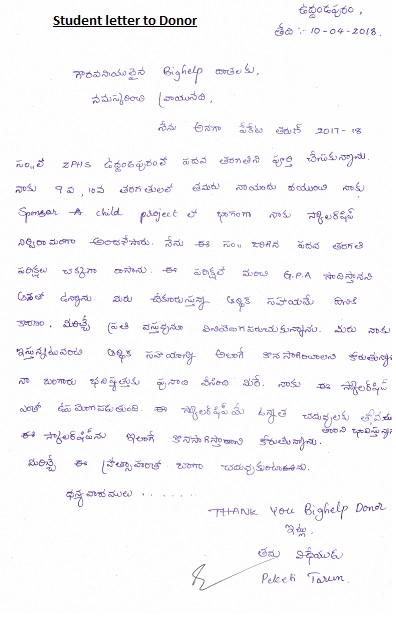 Student letter to Donor
ఉద్దండపురం,
తేది :- 10-04-2018.
గౌరవనీయులైన Bighelp దాతలకు,
నమస్కరించి వ్రాయునది,
నేను అనగా పేకేటి తరుణ్ 2017-18
సం॥లో ZPHS ఉద్దండపురంలో పదవ తరగతిని పూర్తి చేసుకున్నాను.
నాకు 9వ, 10వ తరగతులలో తమరు నాయందు దయుంచి నాకు
Sponsor A child project లో భాగంగా నాకు స్కాలర్‌షిప్
నిర్విరామంగా అందజేసారు. నేను ఈ సం॥ జరిగిన పదవ తరగతి
పరీక్షలు చక్కగా రాసాను. ఈ పరీక్షలో మంచి G.P.A సాధిస్తానని
ఆశతో ఉన్నాను మీరు చేకూరుస్తున్న ఆర్థిక సహాయమే దీనికి
కారణం. మీరిచ్చే ప్రతి వస్తువును వినియోగపరుచుకున్నాను. మీరు నాకు
ఇస్తున్నటువంటి ఆర్థిక సహాయాన్ని అలాగే కొనసాగించాలని కోరుతున్నాను
నా బంగారు భవిష్యత్తుకు పునాది వేసింది మీరే. నాకు ఈ స్కాలర్‌షిప్
ఎంతో ఉపయోగపడుతుంది. ఈ స్కాలర్‌షిప్ మే ఉన్నత చదువులకు
ఈ స్కాలర్‌షిప్‌ను ఇలాగే కొనసాగిస్తారని కోరుతున్నాను.
మీరిచ్చే ఈ ప్రోత్సాహంతో బాగా చదువుకుంటాను.
ధన్యవాదములు . . . . . .
THANK YOU Bighelp Donor
ఇట్లు,
తమ విధేయుడు
Peketi Tarun.